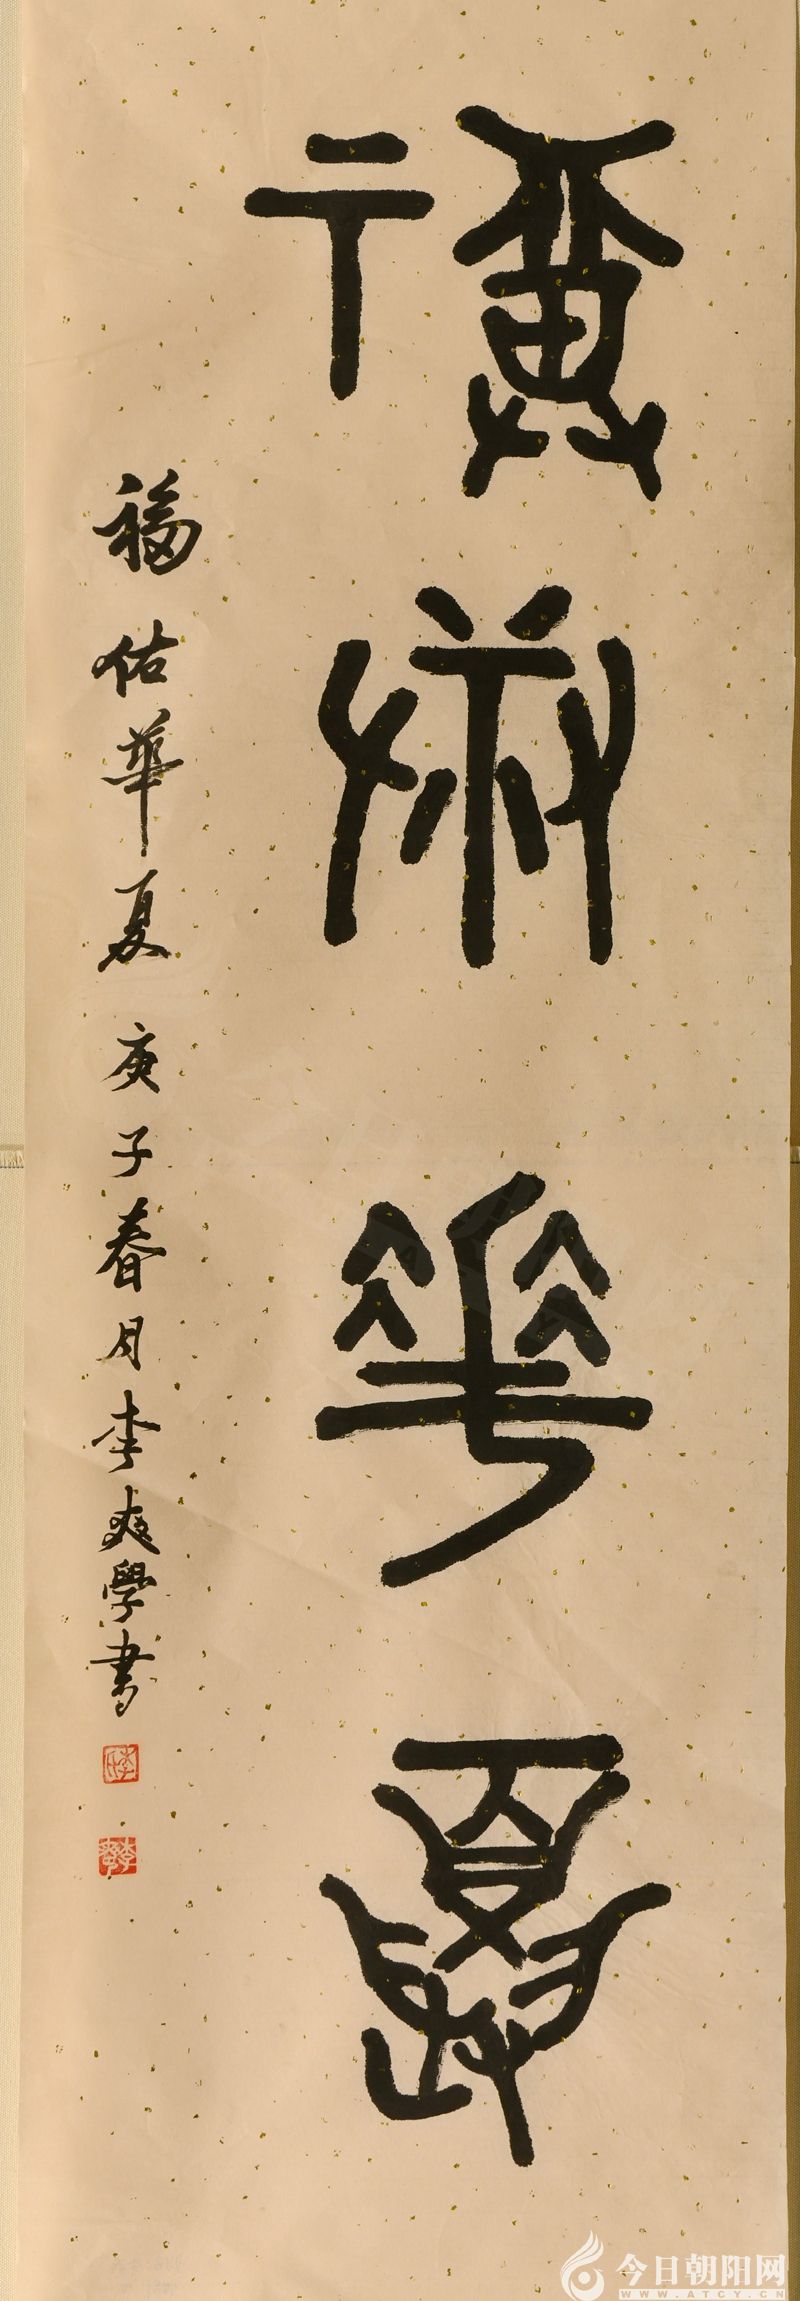 福佑華夏
福佑華夏 庚子春月李爽學書
今日朝阳网
WWW.ATCY.CN